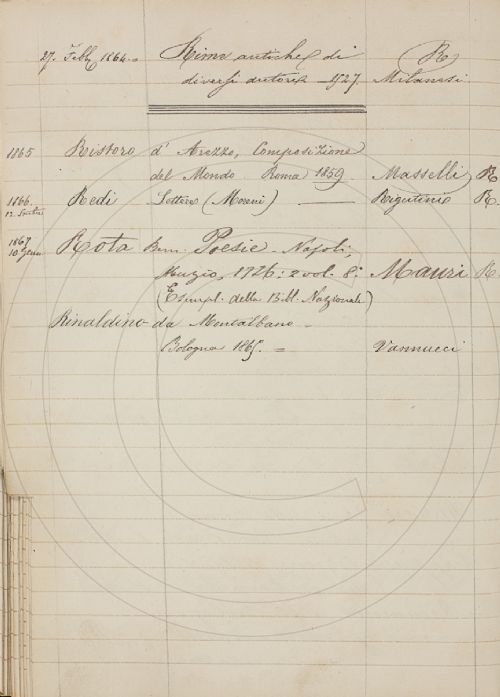 27. Febb. 1864. Rime antiche di R
diversi autori 1527. Milanesi
1865 Ristoro d'Arezzo, Composizione
del Mondo Roma 1859 Masselli R
1866. Redi Lettere (Moreni) — Rigutini R.
12.
1867 Rota Bern. Poesie. Napoli,
10 Genn. Muzio, 1726: 2 vol. 8.° Mauri R
(Esempl. della Bibl. Nazionale)
Rinaldino da Montalbano
Bologna 1865. = Vannucci